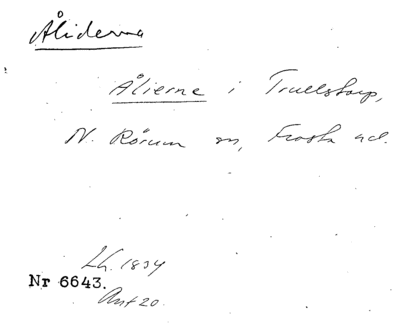 Åliderna
Ålierne i Truelstorp,
N. Rörum sn, Frosta hd.
Lh. 1834
Nr 6643.
Ant 20.